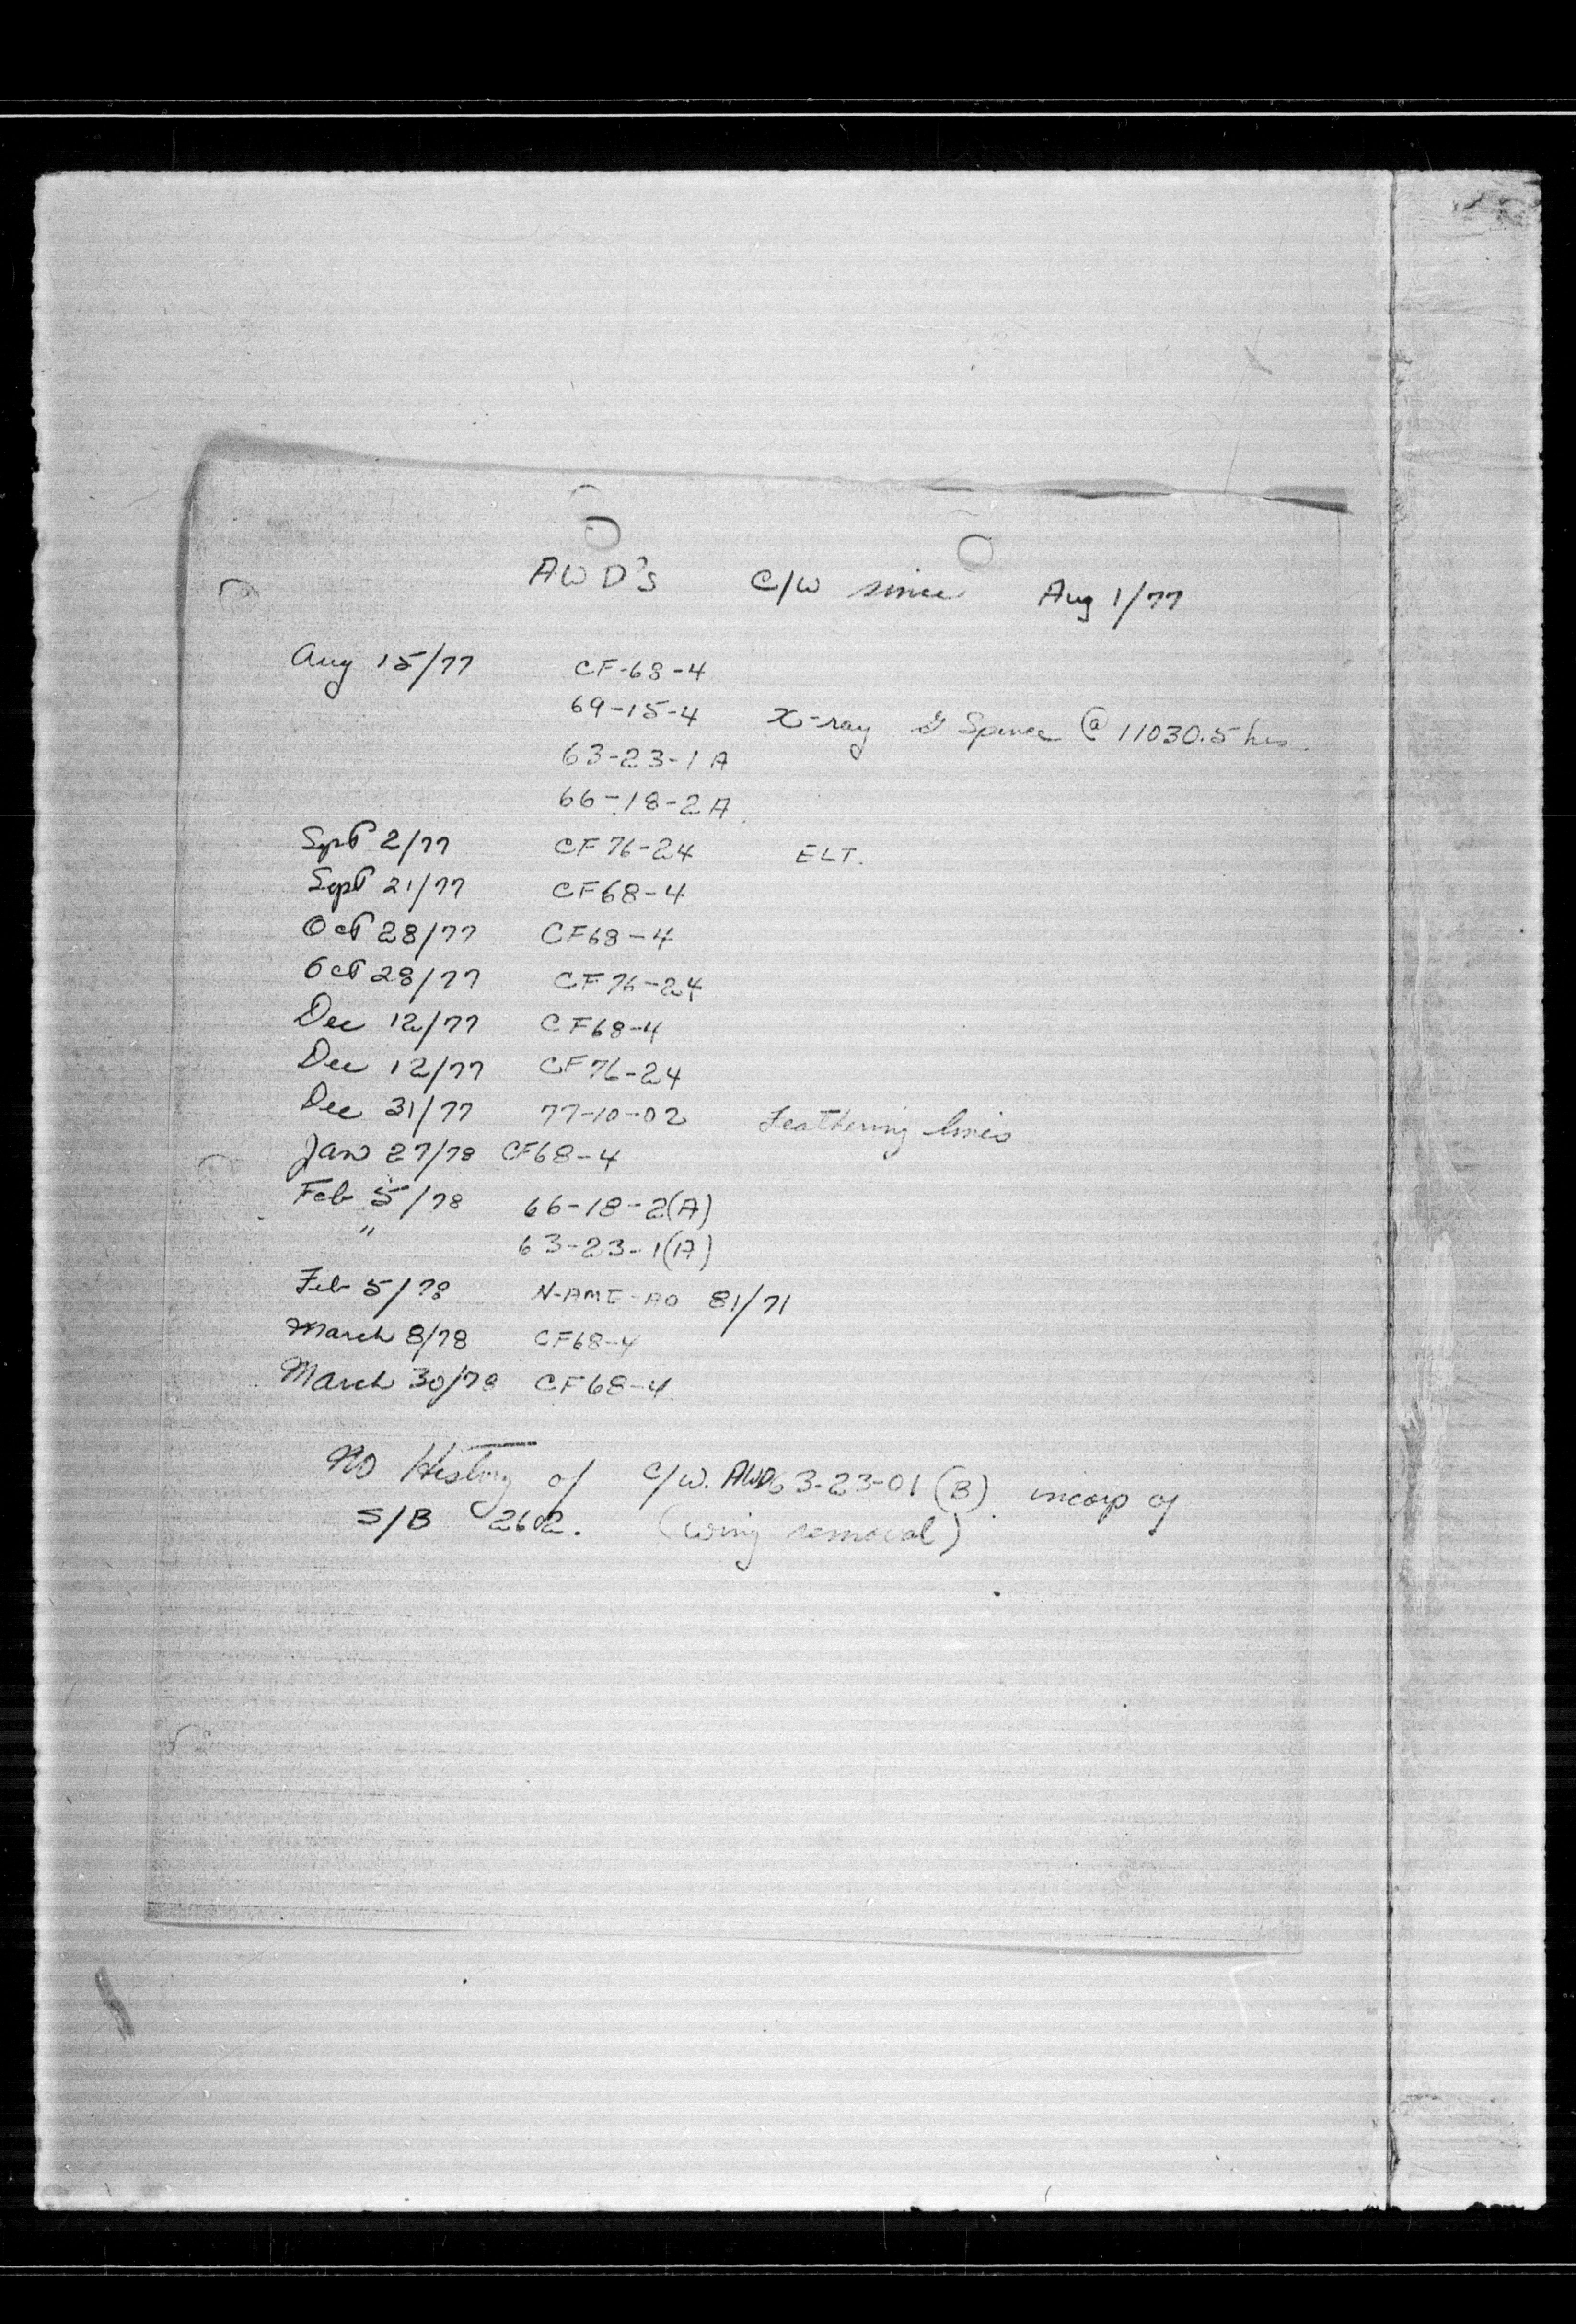 AWD's C/W since Aug 1/77
Aug 15/77 CF-68-4
69-15-4 X-ray Spence @ 11030.5 hrs.
63-23-1A
66-18-2A
Sept 2/77 CF 76-24 ELT.
Sept 21/77 CF68-4
Oct 28/77 CF68-4
Oct 28/77 CF 76-24
Dec 12/77 CF68-4
Dec 12/77 CF 76-24
Dec 31/77 77-10-02 Feathering lines
Jan 27/78 CF68-4
Feb 5/78 66-18-2(A)
" 63-23-1(A)
Feb 5/78 N-AME-AO 81/71
March 8/78 CF68-4
March 30/78 CF68-4
No History of C/W. AWD63-23-01 (B) incorp of
S/B 2602. (wing removal)